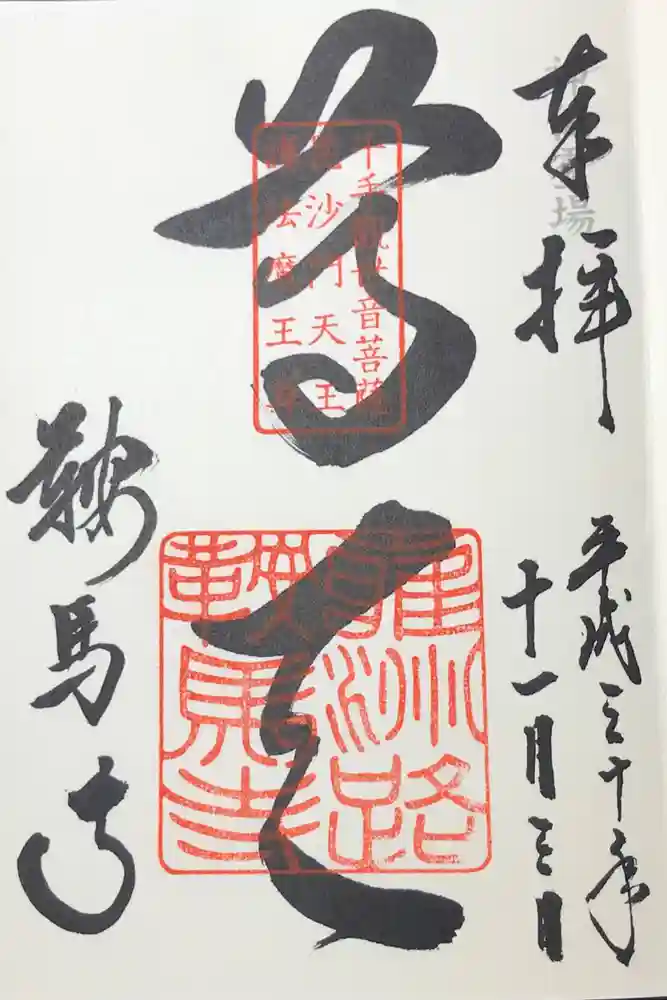 奉拝
平成三十年
十一月三日
尊天
千手観世音菩薩
毘沙門天王
護法魔王尊
雍洲路
鞍馬寺
鞍馬寺